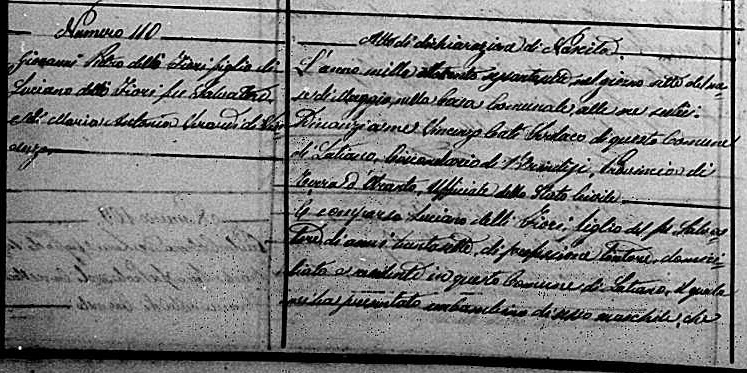 Numero 110
Giovanni Pietro delli Fiori figlio di
Luciano delli Fiori fu Salvatore,
e di Maria Antonia di Vin-
cenzo.
Atto di dichiarazione di Nascita.
L'anno mille ottocento sessantasette, nel giorno sette del me-
se di Maggio, nella Casa Comunale, alle ore sedici.
Dinanzi a me Vincenzo Sindaco di questo Comune
di Latiano, Circondario di Brindisi, Provincia di
Terra d'Otranto, Uffiziale dello Stato Civile.
È comparso Luciano delli Fiori, figlio del fu Salva-
tore, di anni trentasette, di professione, domici-
liato e residente in questo Comune di Latiano, il quale
mi ha presentato un bambino di sesso maschile, che